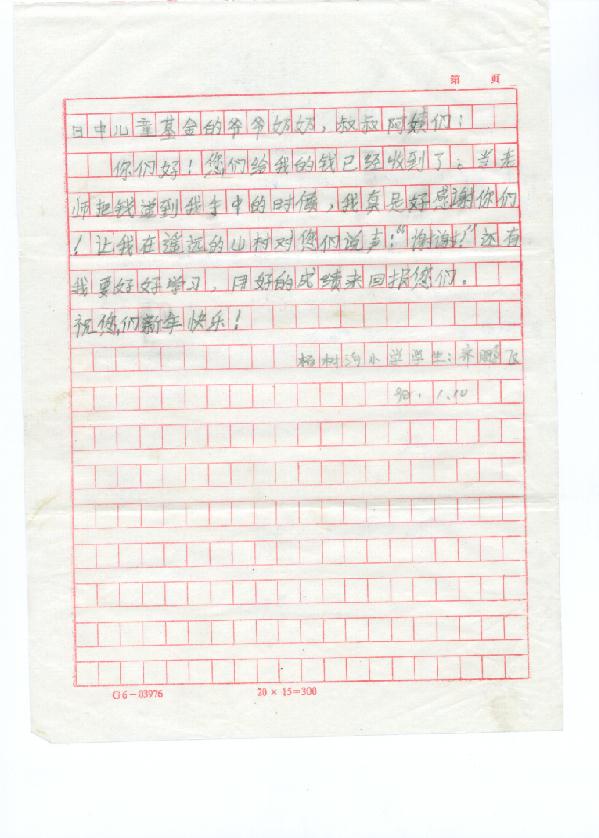 第 页
日中儿童基金的爷爷奶奶，叔叔阿姨们：
你们好！您们给我的钱已经收到了。当老
师把钱递到我手中的时候，我真是好感谢你们
！让我在遥远的山村对您们说声：“谢谢！”还有
我要好好学习，用好的成绩来回报您们。
祝您们新年快乐！
杨树沟小学学生：齐鹏飞
1.10
G6-03976 20×15=300